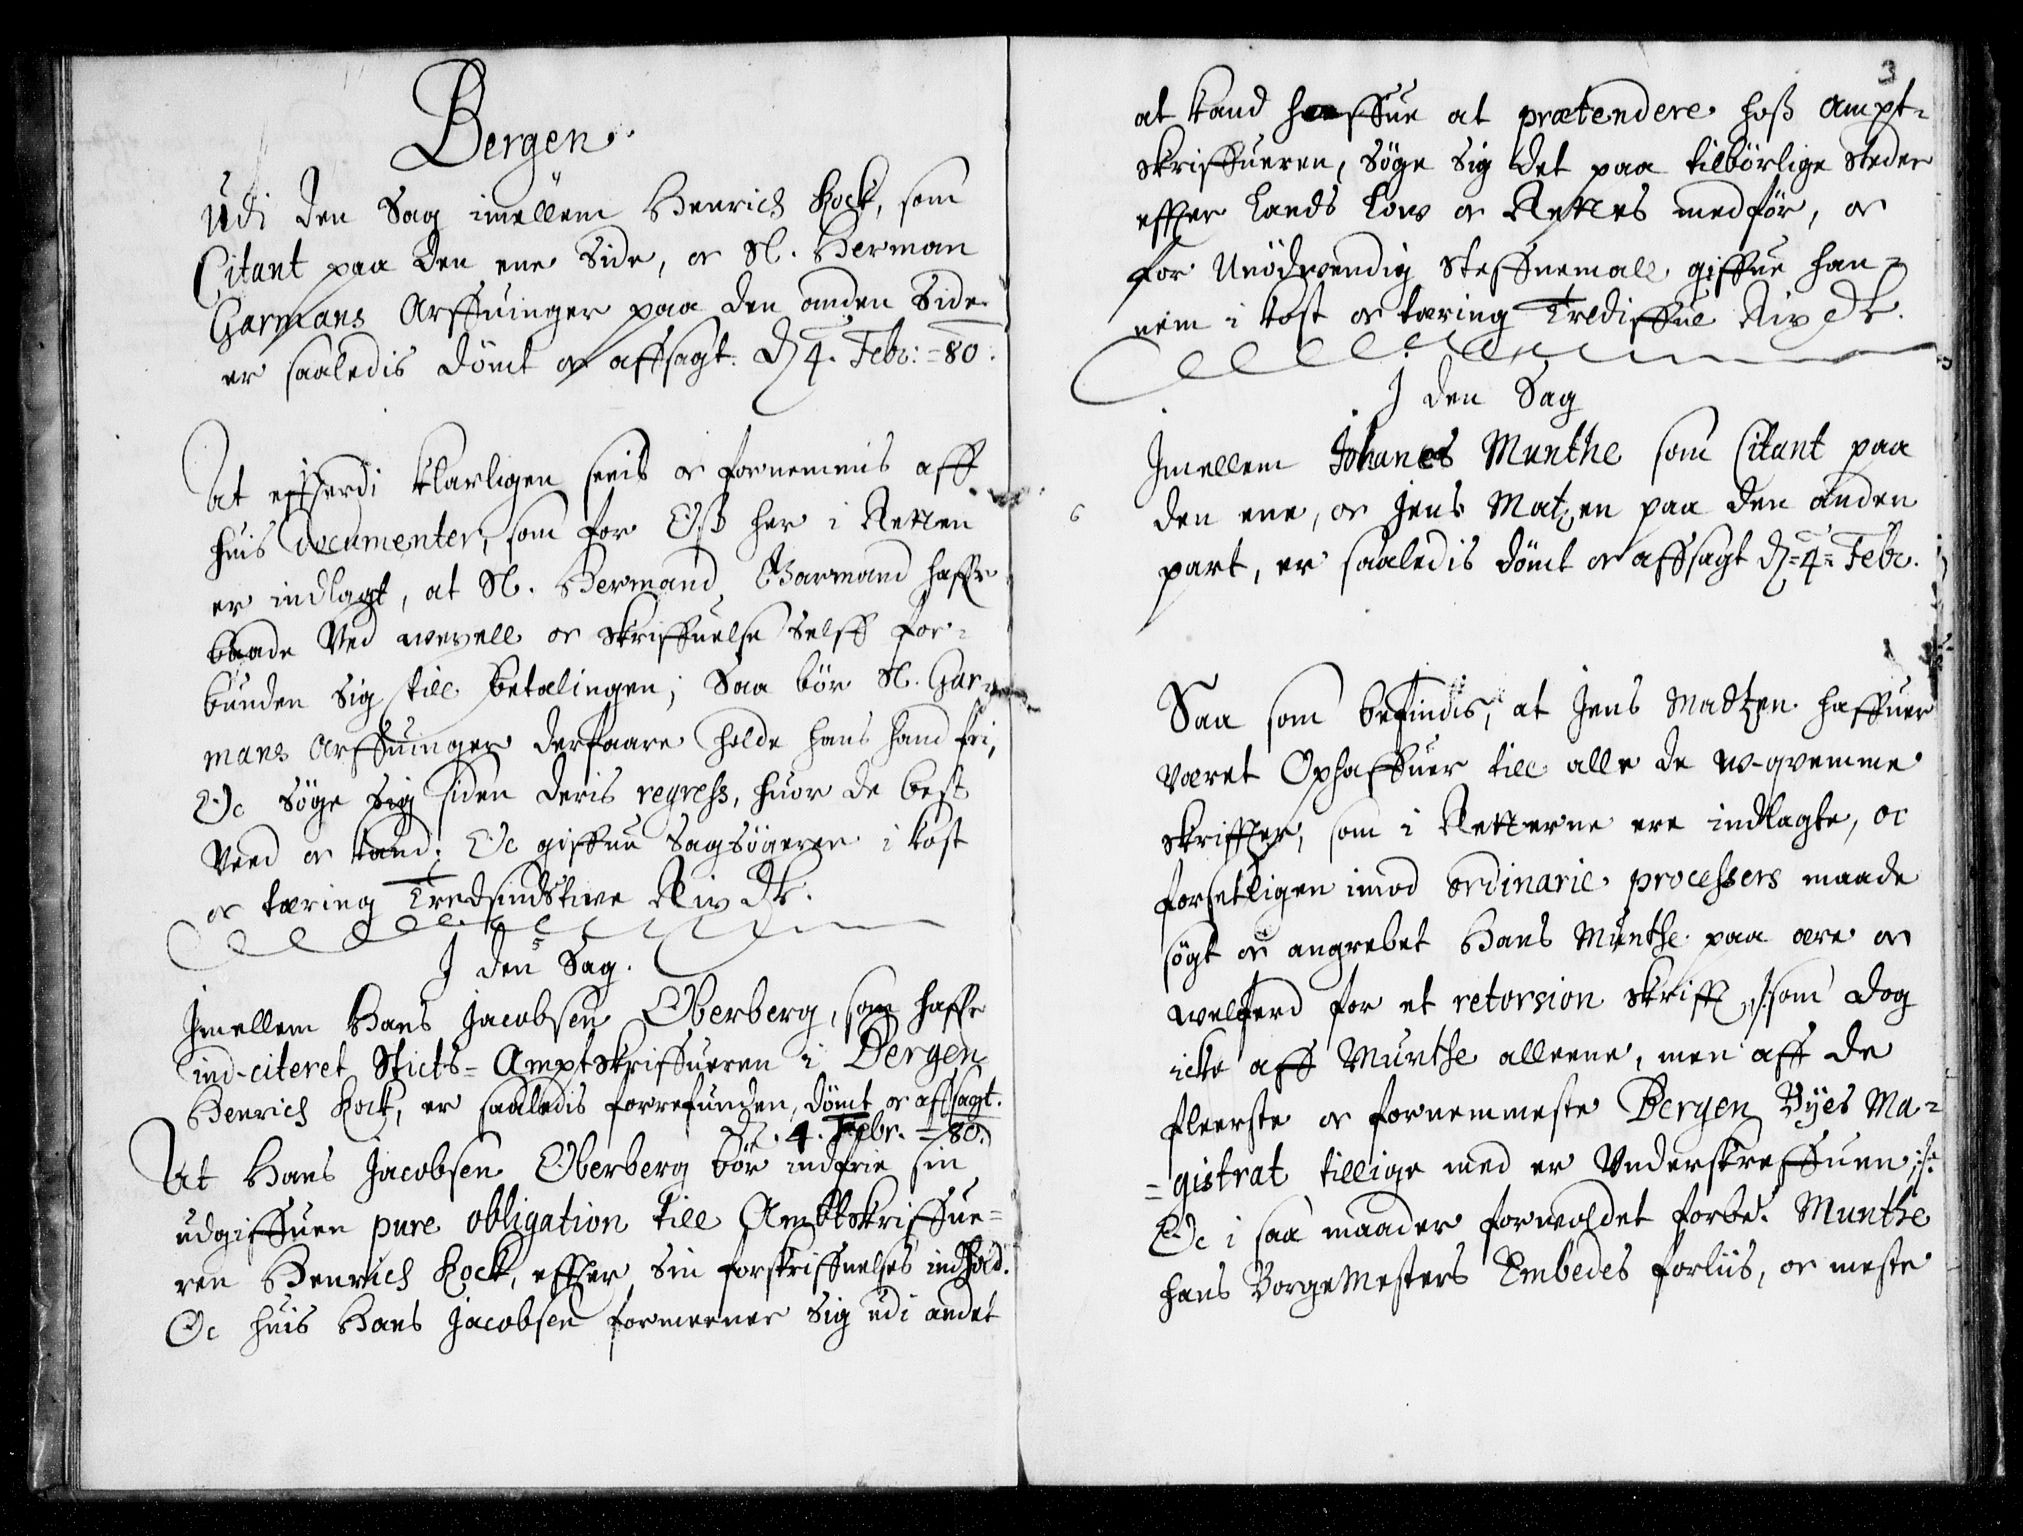 Bergen.
Udi den Sag imellem Henrich Kock, som
Citant paa den ene Side, oc Sl. Herman
Garmans Arffuinger paa den anden Side
er saaledis dömt oc affsagt. D. 4. Febr: =80.
At effterdi klarligen seeis oc fornemmis aff
huis documenter, som for Oss her i Retten
er indlagt, at Sl. Hermand Garmand haffr
baade Ved wexell oc skriffuelse Selff for=
bunden Sig till betalingen; Saa bör Sl. Gar
mans Arffuinger derfaare holde hans hand fri,
Oc söge Sig siden deris regress, huor de best
Veed oc kand; Oc giffue Sagsögeren i kost
oc tæring Tredsindstiue Rix Dr.
5
I den Sag.
Imellem Hans Jacobsen Oberberg, som haffr
ind-citeret Sticts=Amptskriffueren i Bergen
Henrich Kock, er saaledis forrefunden, dömt oc affsagt.
D. 4. Febr. =80.
At Hans Jacobsen Oberberg bör indfrie sin
udgiffuen pure obligation till Ambtskriffue=
ren Henrich Kock, effter Sin forskriffuelses indhold.
Oc huis Hans Jacobsen formeener Sig udi andet
3
at kand haffue at prætendere hoss Ampt=
skriffueren, Söge Sig det paa tilbörlige Steder
effter Lands Low oc Rettes medför, oc
for Unödvendig Steffnemall giffue han=
nem i kost oc tæring Trediffue Rix Dr.
I den Sag
Imellem Johanes Munthe som Citant paa
6
den ene, oc Jens Matzen paa den anden
part, er saaledis dömt oc affsagt D. =4= Febr.
Saa som befindis, at Jens Madtzen haffuer
været Ophaffuer till alle de w-qvemme
skriffter, som i Retterne ere indlagte, oc
forsetligen imod ordinarie processers maade
sögt oc angrebet Hans Munthe paa ære oc
welferd for et retorsion skrifft /: som dog
icke aff Munthe alleene, men aff de
fleerste oc fornemmeste Bergen Byes Ma=
=gistrat tillige med er Underskreffuen :/:
Oc i saa maader forvoldet forbe. Munthe
hans BorgeMesters Embedes forliis, oc meste